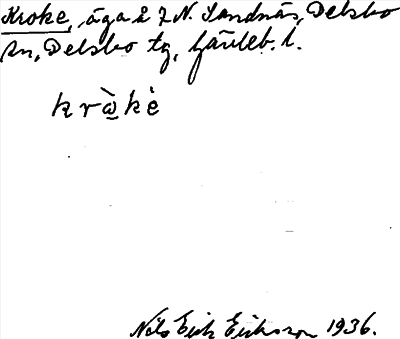 Kroke, äga å 7 N. Sandnäs, Delsbo
sn, Delsbo tg, Gävleb. l.
kràkè
Nils Erik Eriksson 1936.